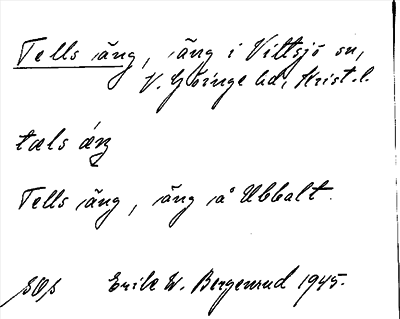 Tells äng, äng i Vittsjö sn,
V. Göinge hd, Krist. l.
tæls áŋ
Tells äng, äng å Ubbalt.
SOS Erik W. Bergenrud 1945.